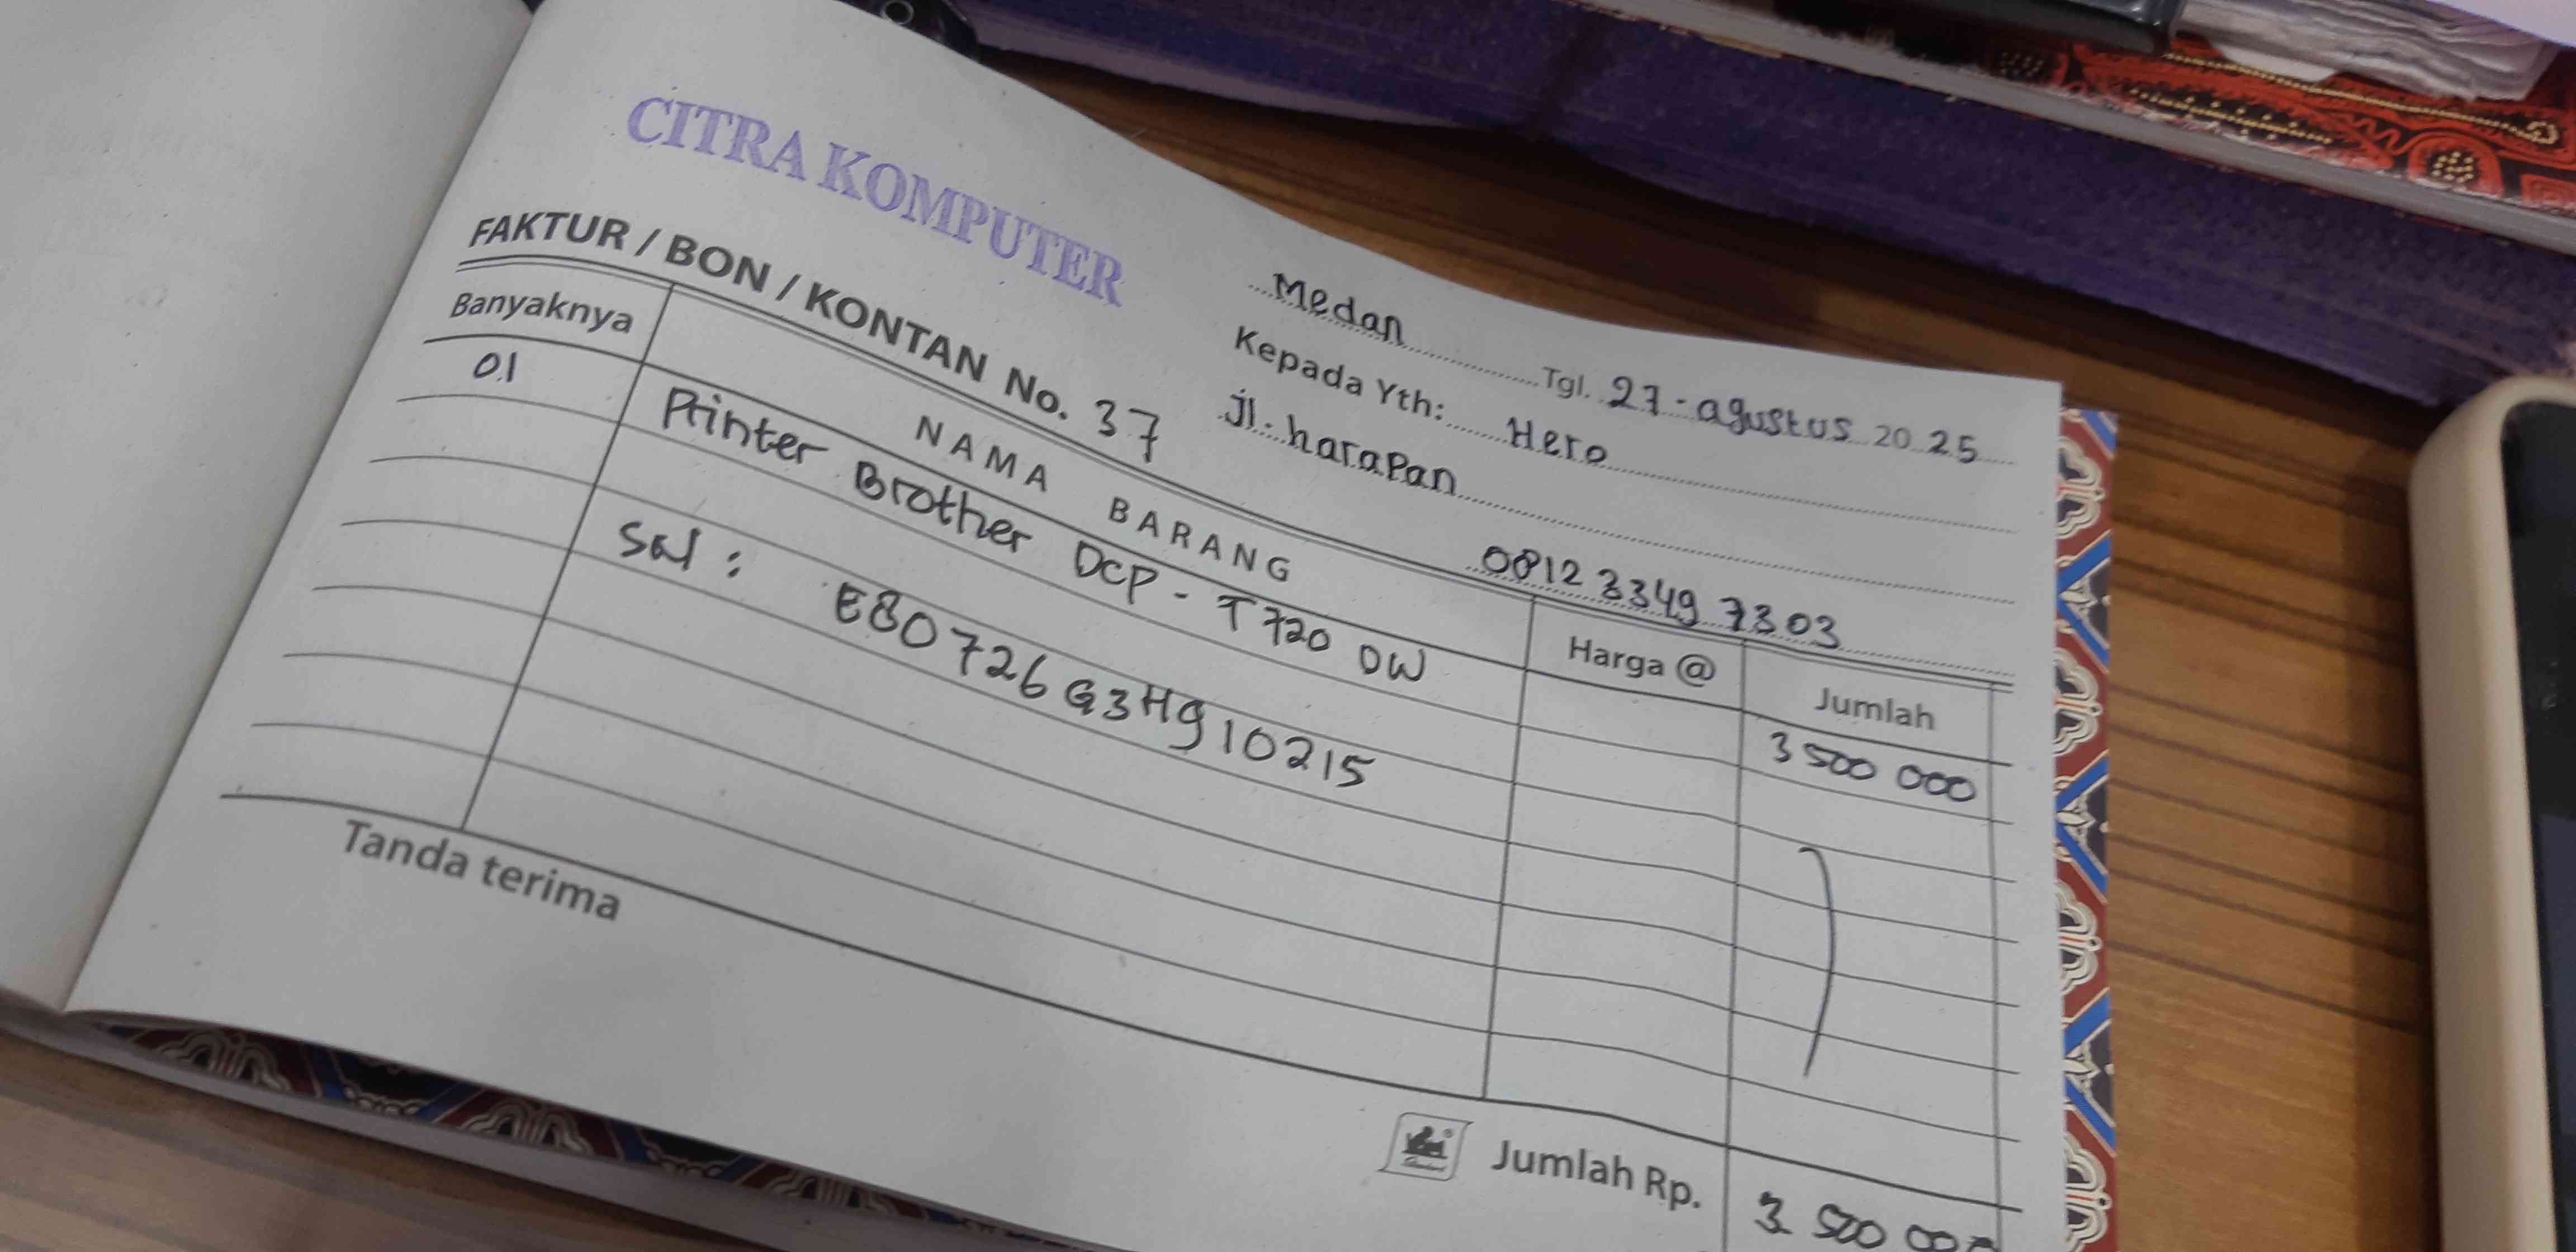 CITRA KOMPUTER
Medan Tgl. 27-agustus 2025
Kepada Yth: Hero
jl. harapan
0812 3349 7303
FAKTUR / BON / KONTAN No. 37
Banyaknya NAMA BARANG Harga @ Jumlah
01 Printer Brother DCP - T720 DW 3 500 000
SN : E80726G3H910215
Tanda terima
Jumlah Rp. 3 500 000